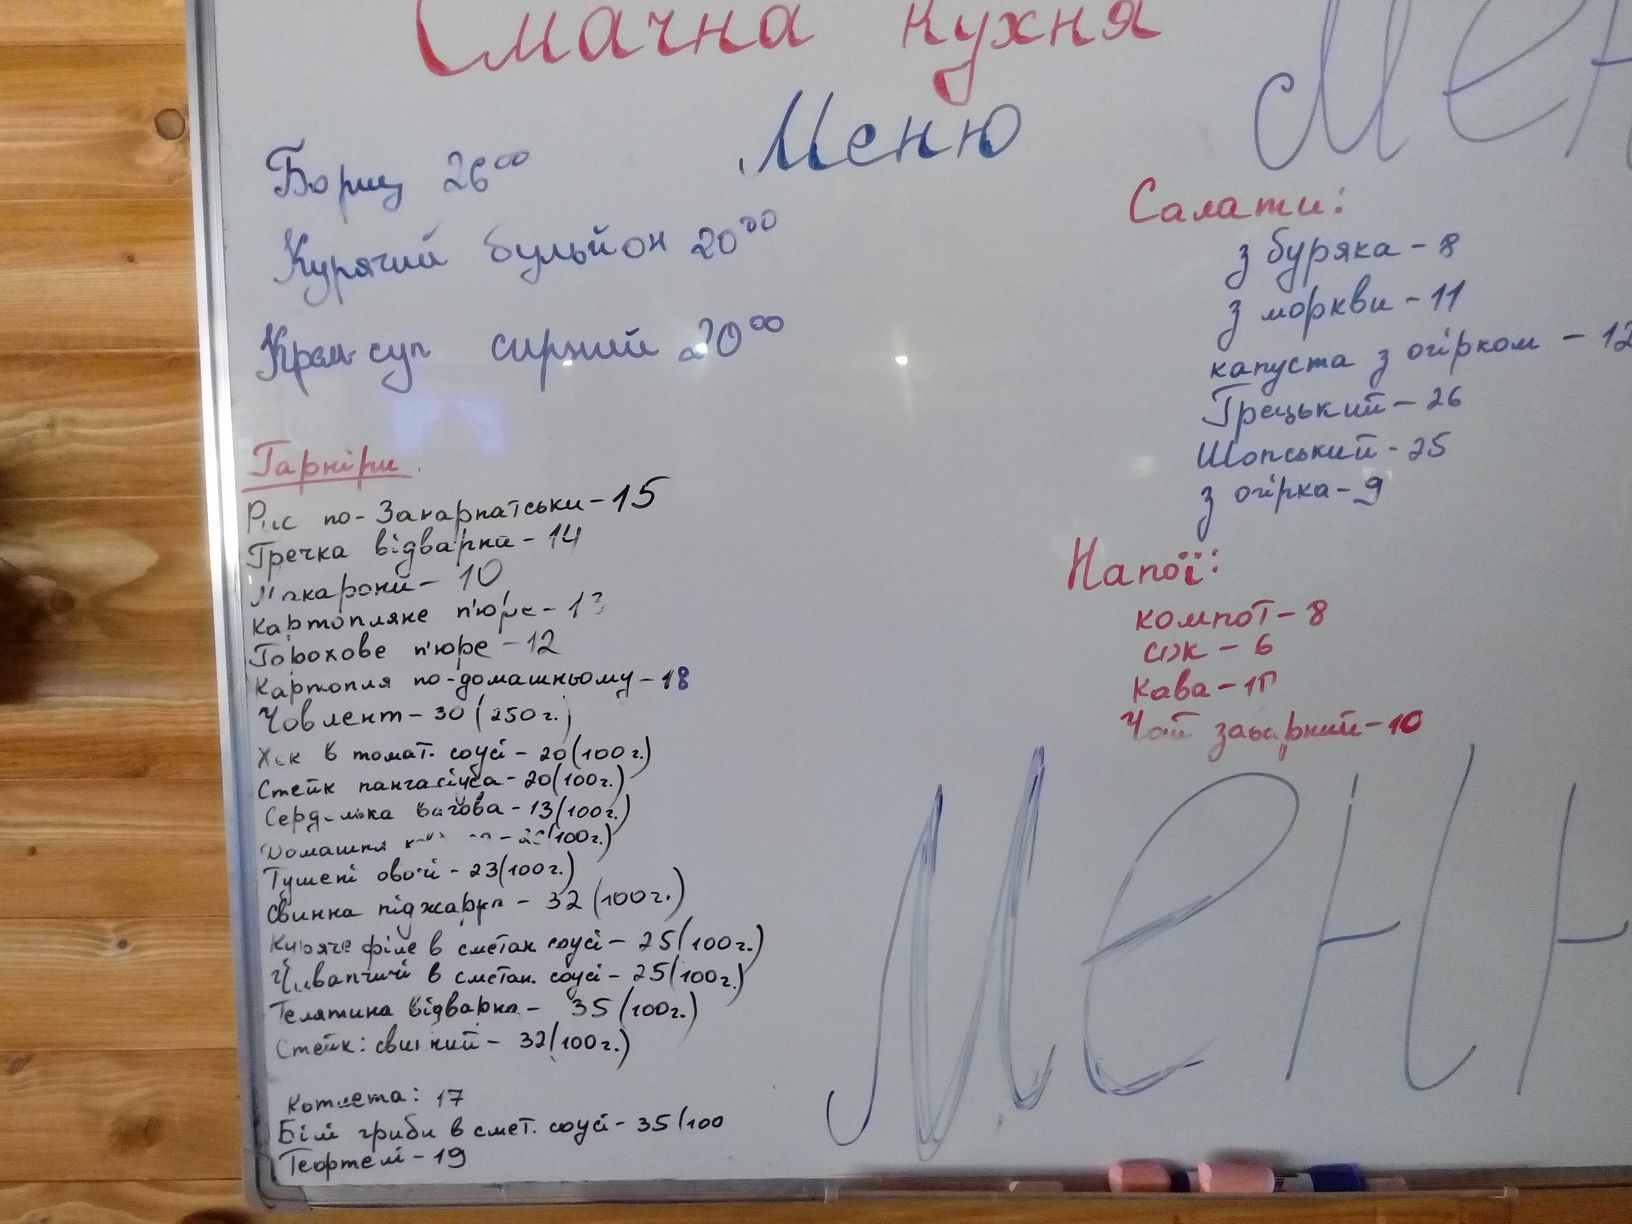 Смачна кухня
Меню
Борщ 26⁰⁰
Курячий бульйон 20⁰⁰
Крем-суп сирний 20⁰⁰
Гарніри
Рис по-Закарпатськи-15
Гречка відварна-14
Макарони-10
Картопляне п'юре-13
Горохове п'юре-12
Картопля по-домашньому-18
Човлент-30(250г.)
Хек в томат. соусі-20(100г.)
Стейк пангасіуса-20(100г.)
Серделька вагова-13(100г.)
Домашня (100г.)
Тушені овочі-23(100г.)
Свинна піджарка-32(100г.)
Куряче філе в сметан соусі-25(100г.)
Чивапчичі в сметан. соусі-25(100г.)
Телятина відварна-35(100г.)
Стейк: свинний-32(100г.)
Котлета: 17
Білі гриби в смет. соусі-35(100
Тефтелі-19
Салати:
з буряка-8
з моркви-11
капуста з огірком-12
Грецький-26
Шопський-25
з огірка-9
Напої:
компот-8
сік-6
Кава-
Чай заварний-10
Мен
Мени